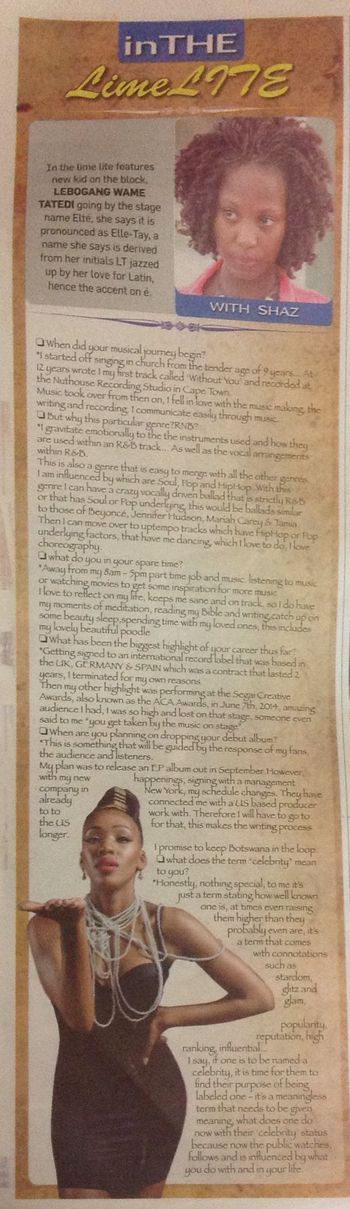 inTHE
LimeLITE
In the lime lite features
new kid on the block,
LEBOGANG WAME
TATEDI going by the stage
name Elté, she says it is
pronounced as Elle-Tay, a
name she says is derived
from her initials LT jazzed
up by her love for Latin,
hence the accent on é.
WITH SHAZ
❑ When did your musical journey begin?
*I started off singing in church from the tender age of 9 years... At
12 years wrote I my first track called 'Without You' and recorded at
the Nuthouse Recording Studio in Cape Town.
Music took over from then on, I fell in love with the music making, the
writing and recording, I communicate easily through music.
❑ But why this particular genre?RNB?
*I gravitate emotionally to the the instruments used and how they
are used within an R&B track... As well as the vocal arrangements
within R&B.
This is also a genre that is easy to merge with all the other genres
I am influenced by which are Soul, Pop and HipHop. With this
genre I can have a crazy vocally driven ballad that is strictly R&B
or that has Soul or Pop underlying, this would be ballads similar
to those of Beyoncé, Jennifer Hudson, Mariah Carey & Tamia.
Then I can move over to uptempo tracks which have HipHop or Pop
underlying factors, that have me dancing, which I love to do, I love
choreography.
❑ what do you in your spare time?
*Away from my 8am - 5pm part time job and music. listening to music
or watching movies to get some inspiration for more music.
I love to reflect on my life, keeps me sane and on track, so I do have
my moments of meditation, reading my Bible and writing,catch up on
some beauty sleep,spending time with my loved ones, this includes
my lovely beautiful poodle
❑ What has been the biggest highlight of your career thus far?
*Getting signed to an international record label that was based in
the UK, GERMANY & SPAIN which was a contract that lasted 2
years, I terminated for my own reasons.
Then my other highlight was performing at the Segai Creative
Awards, also known as the ACA Awards, in June 7th, 2014, amazing
audience I had, I was so high and lost on that stage, someone even
said to me "you get taken by the music on stage"
❑ When are you planning on dropping your debut album?
*This is something that will be guided by the response of my fans,
the audience and listeners.
My plan was to release an EP album out in September. However,
with my new happenings, signing with a management
company in New York, my schedule changes. They have
already connected me with a US based producer
to to work with. Therefore I will have to go to
the US for that, this makes the writing process
longer.
I promise to keep Botswana in the loop.
❑ what does the term "celebrity" mean
to you?
*Honestly, nothing special, to me it's
just a term stating how well known
one is, at times even raising
them higher than they
probably even are, it's
a term that comes
with connotations
such as
stardom,
glitz and
glam,
popularity,
reputation, high
ranking, influential...
I say, if one is to be named a
celebrity, it is time for them to
find their purpose of being
labeled one - it's a meaningless
term that needs to be given
meaning, what does one do
now with their 'celebrity' status
because now the public watches,
follows and is influenced by what
you do with and in your life.